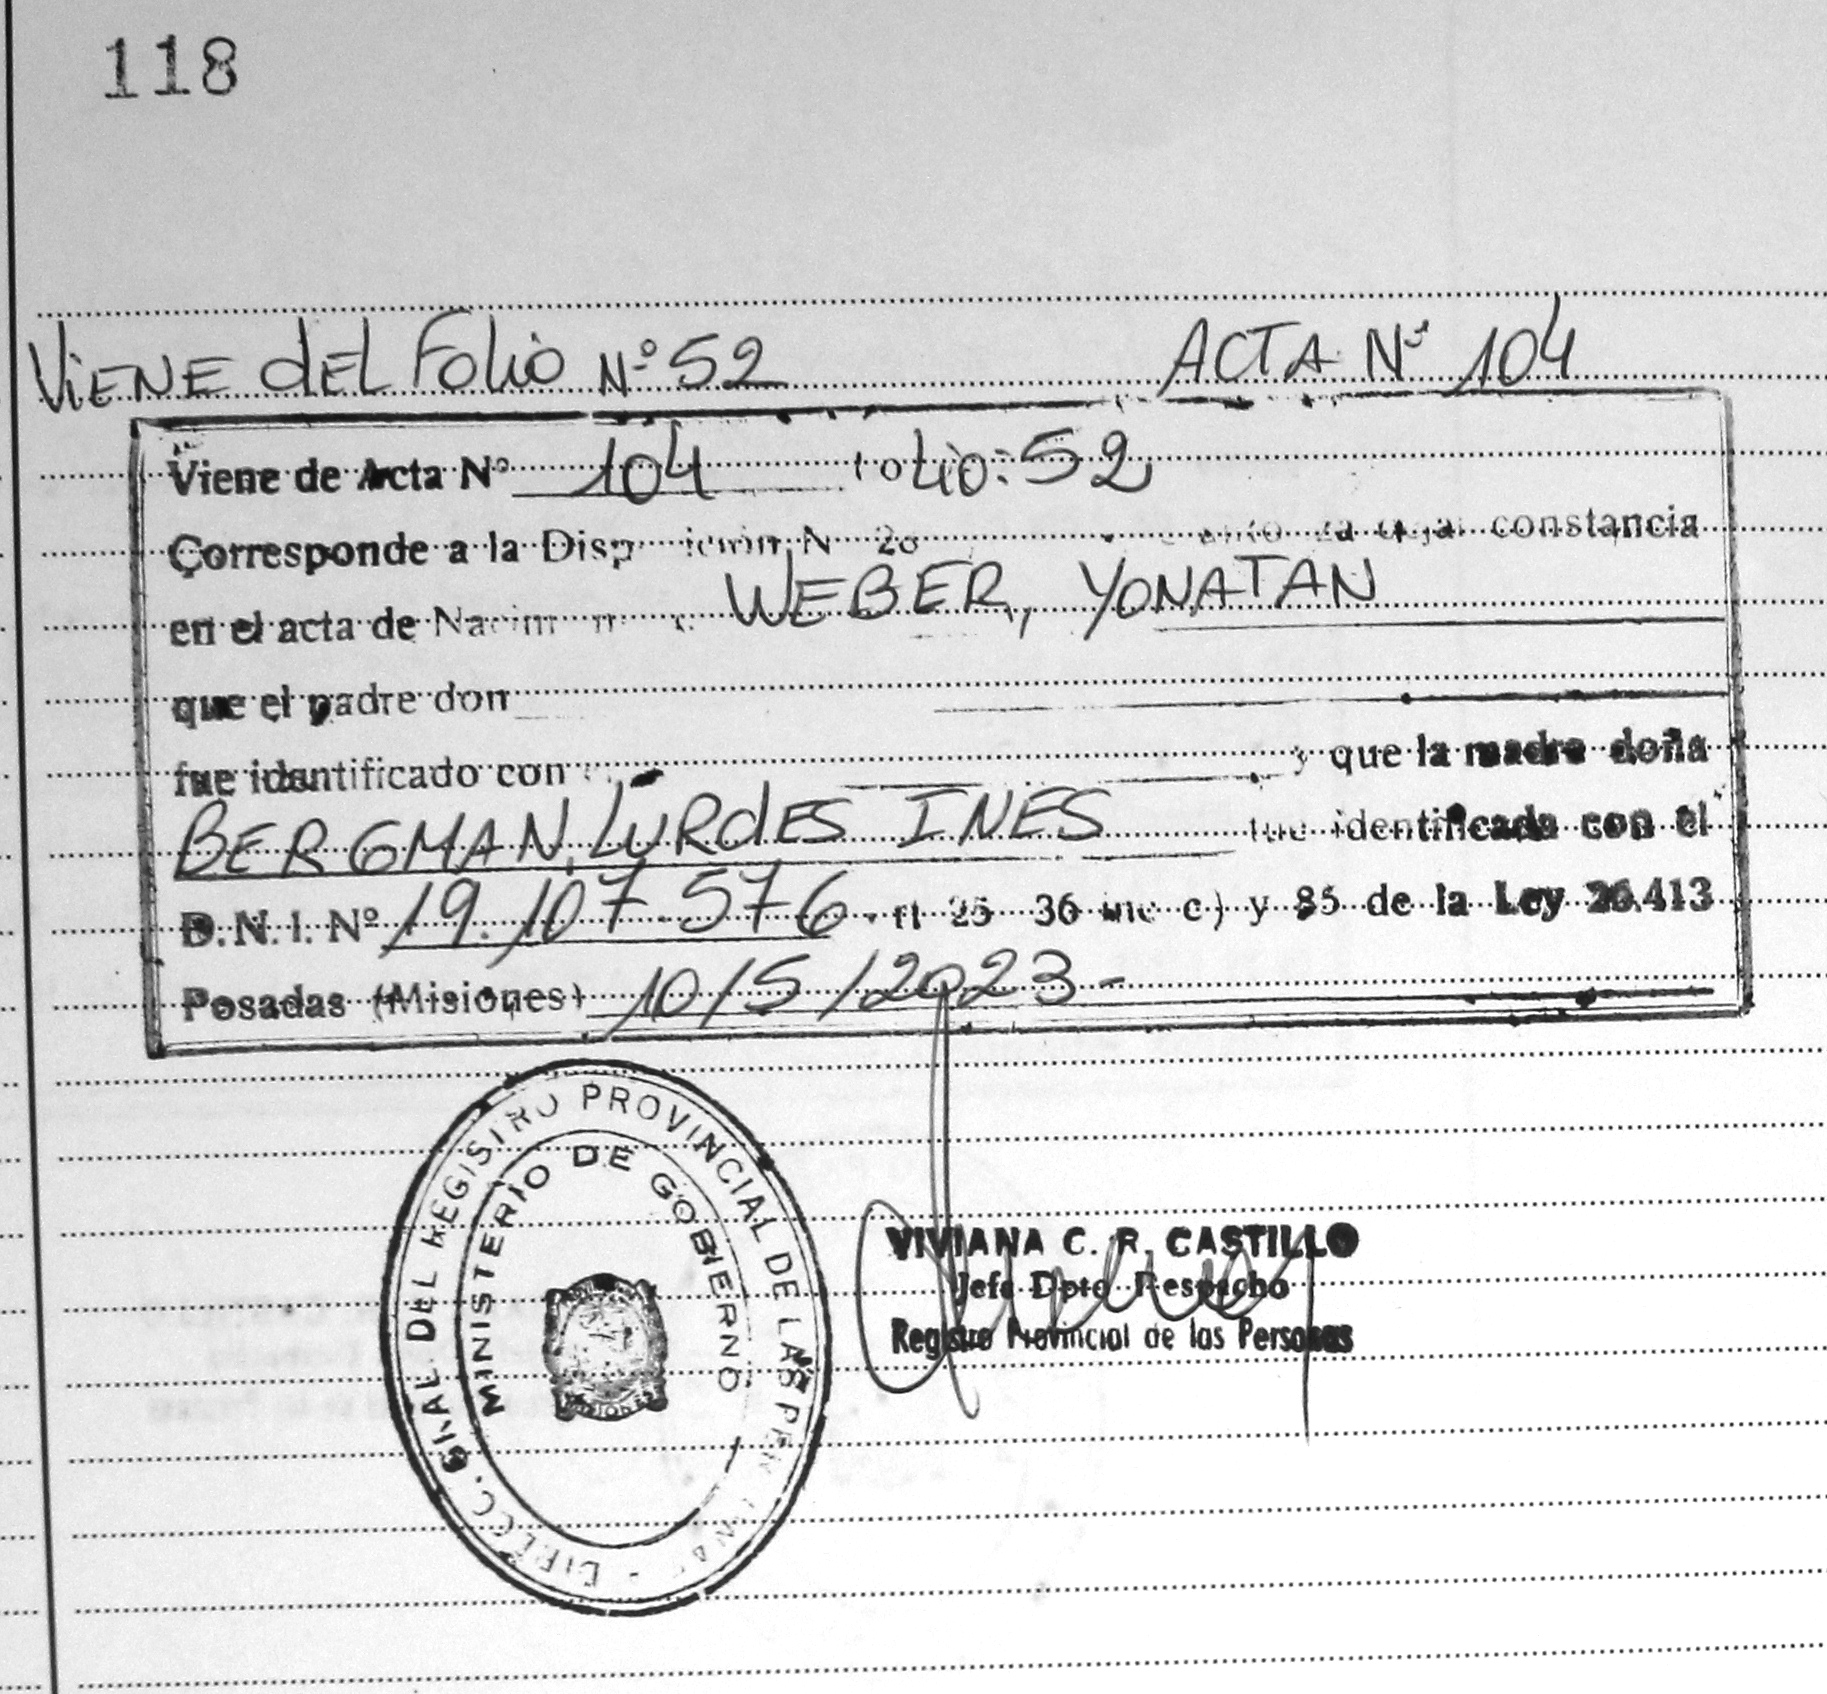 118
ViENE dEL FoLio N° 52 ACTA N° 104
Viene de Acta N° 104 folio: 52
Corresponde a la N constancia
en el acta de WEBER, YONATAN
que el padre don
fue identificado con y que la madre doña
BERGMAN, LURdES INES fue identificada con el
D.N.I. Nº 19.107.576 25 36 inc c) y 85 de la Ley 26.413
Posadas (Misiones) 10/5/2023-
DIRECC. GRAL DEL REGISTRO PROVINCIAL DE LAS PERSONAS
MINISTERIO DE GOBIERNO
MISIONES
VIVIANA C. R. CASTILLO
Jefe Dpto Despacho
Registro Provincial de las Personas